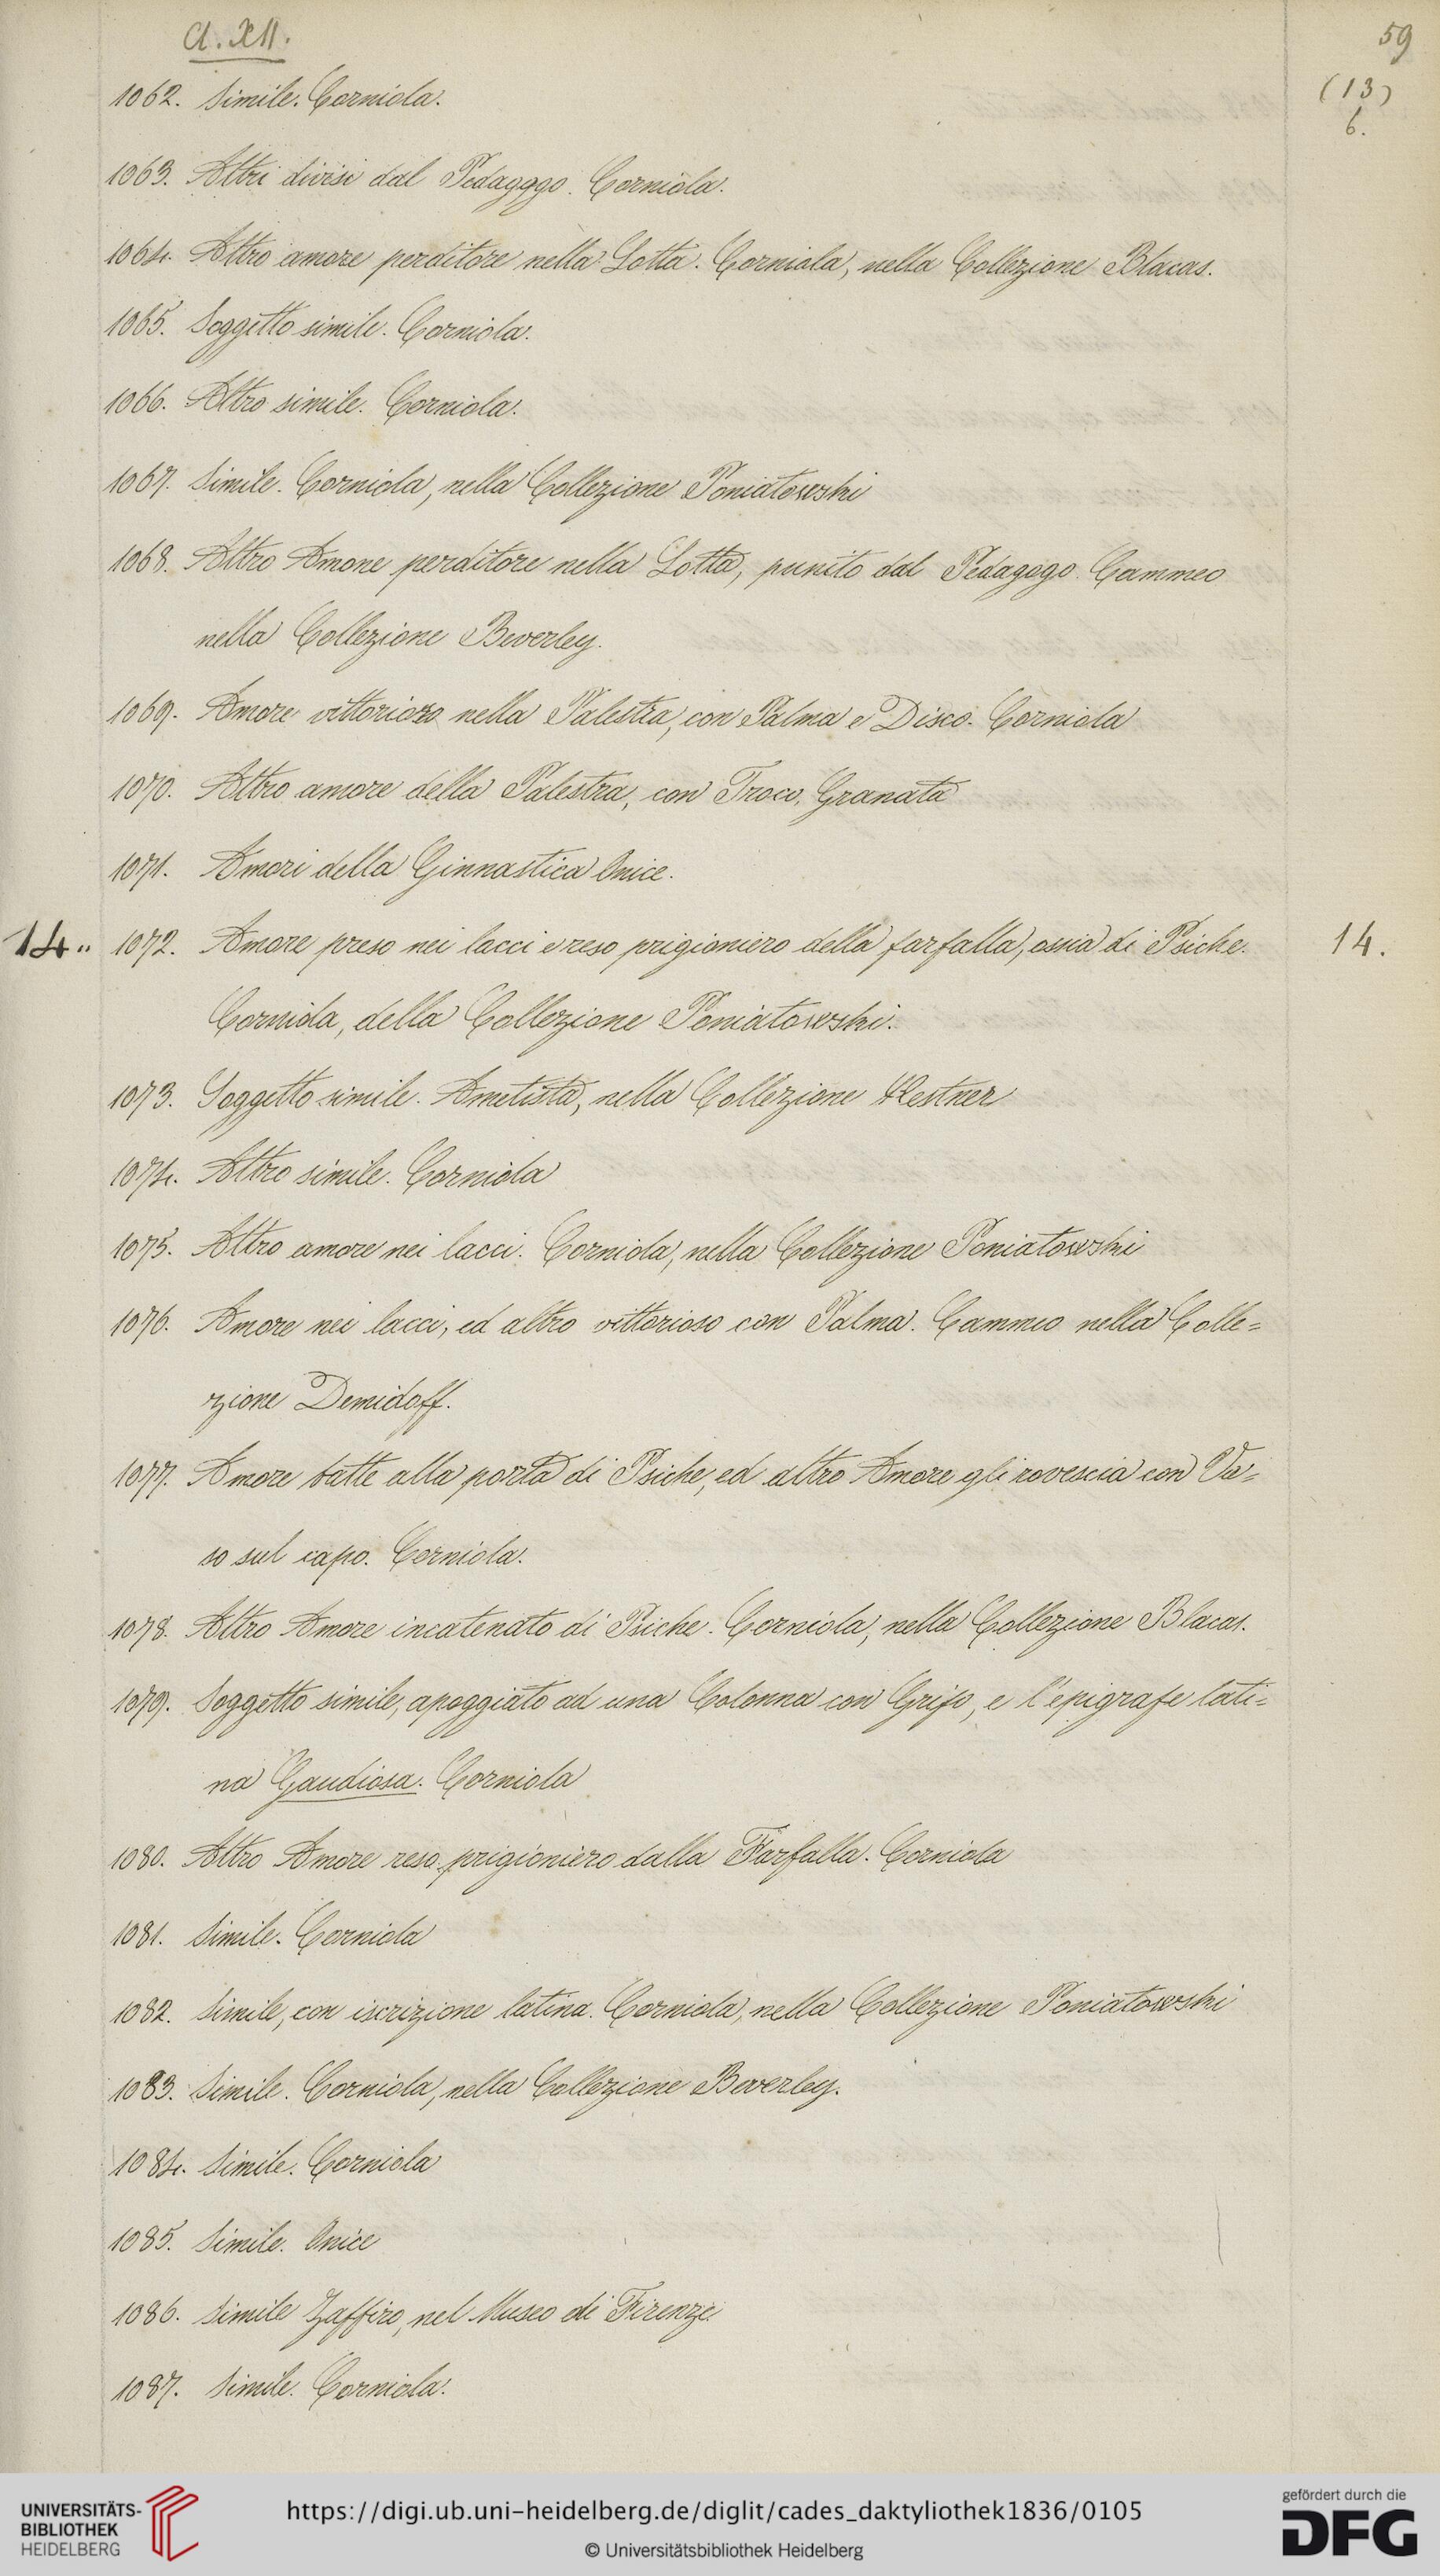 Cl. XII.
59
(13)
6.
1062. Simile. Corniola.
1063. Altri divisi dal Pedagggo. Corniola.
1064. Altro amore perditore nella Lotta. Corniola, nella Collezione Blacas.
1065. Soggetto simile. Corniola.
1066. Altro simile. Corniola.
1067. Simile. Corniola, nella Collezione Poniatowski
1068. Altro Amone perditore nella Lotta, punito dal Pedagogo. Cammeo
nella Collezione Beverley.
1069. Amore vittorioso nella Palestra, con Palma e Disco. Corniola
1070. Altro amore della Palestra, con Troco. Granata
1071. Amori della Ginnastica Onice.
14.. 1072. Amore preso nei lacci e reso prigioniero della farfalla, ossia di Psiche. 14.
Corniola, della Collezione Poniatowski.
1073. Soggetto simile. Ametista, nella Collezione Kestner
1074. Altro simile. Corniola
1075. Altro amore nei lacci. Corniola, nella Collezione Poniatowski
1076. Amore nei lacci, ed altro vittorioso con Palma. Cammeo nella Colle=
zione Demidoff.
1077. Amore batte alla porta di Psiche, ed altro Amore gli rovescia con Va=
so sul capo. Corniola.
1078. Altro Amore incatenato di Psiche. Corniola, nella Collezione Blacas.
1079. Soggetto simile, apoggiato ad una Colonna con Grifo, e l'epigrafe lati=
na Gaudiosa. Corniola
1080. Altro Amore reso prigioniero dalla Farfalla. Corniola
1081. Simile. Corniola
1082. Simile, con iscrizione latina. Corniola, nella Collezione Poniatowski
1083. Simile. Corniola, nella Collezione Beverley.
1084. Simile. Corniola
1085. Simile. Onice
1086. Simile Zaffiro, nel Museo di Firenze
1087. Simile. Corniola.
UNIVERSITÄTS-
BIBLIOTHEK
HEIDELBERG
https://digi.ub.uni-heidelberg.de/diglit/cades_daktyliothek1836/0105
© Universitätsbibliothek Heidelberg
gefördert durch die
DFG